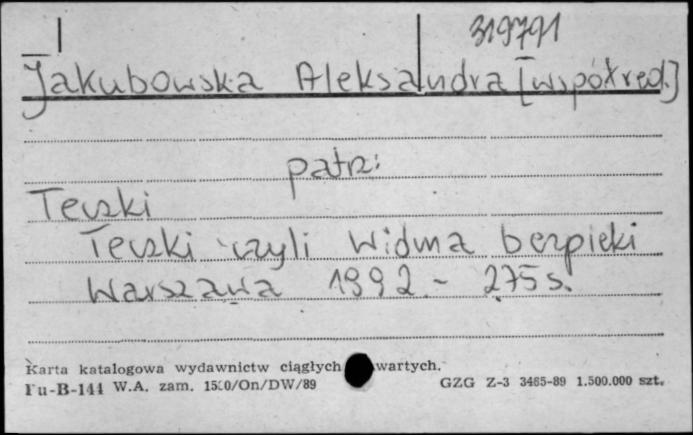 319791
Jakubowska Aleksandra [współred.]
patrz:
Teczki
Teczki czyli widma bezpieki
Warszawa 1992 - 275 s.
Karta katalogowa wydawnictw ciągłych wartych.
Pu-B-144 W.A. zam. 1500/On/DW/89 GZG Z-3 3465-89 1.500.000 szt.